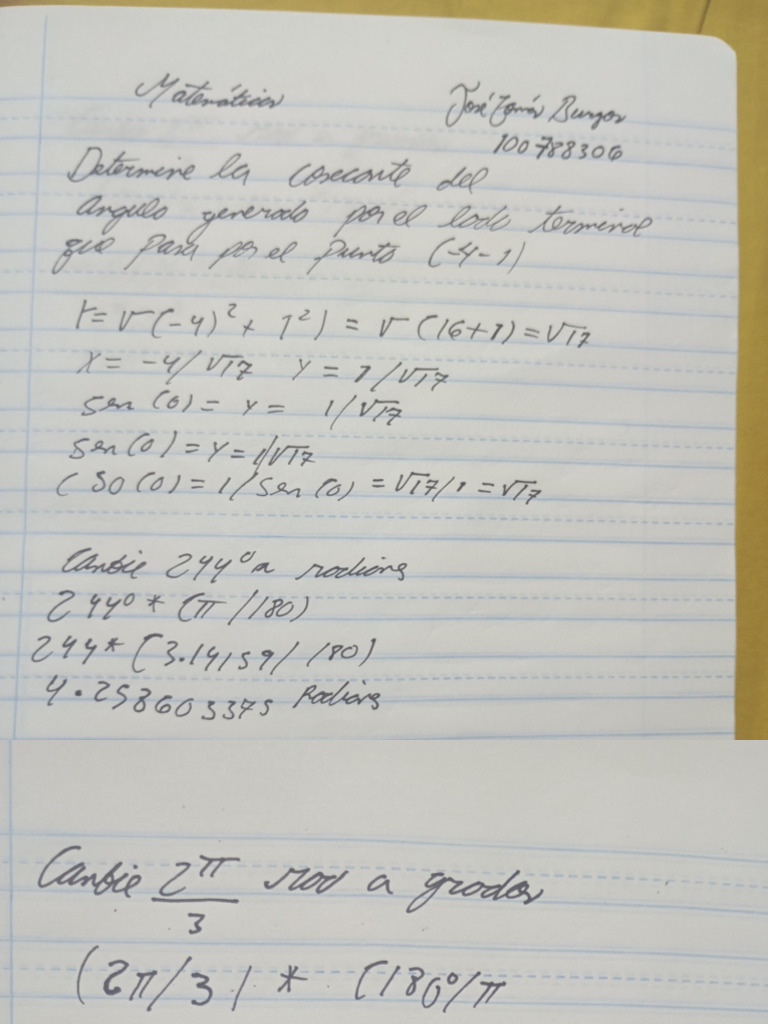 Matemáticas
José Tomás Burgos
100788306
Determine la cosecante del
angulo generado por el lado terminal
que pasa por el punto (-4-1)
r= √(-4)² + 1²) = √(16+1) = √17
X= -4/√17 Y = 1/√17
sen (0) = Y = 1/√17
sen(0) = Y = 1/√17
CSO (0) = 1/sen (0) = √17/1 = √17
Canbie 244° a radians
244° * (π/180)
244* (3.14159/ 180)
4.258603375 Radians
Canbie 2π/3 rad a grados
(2π/3) * (180°/π